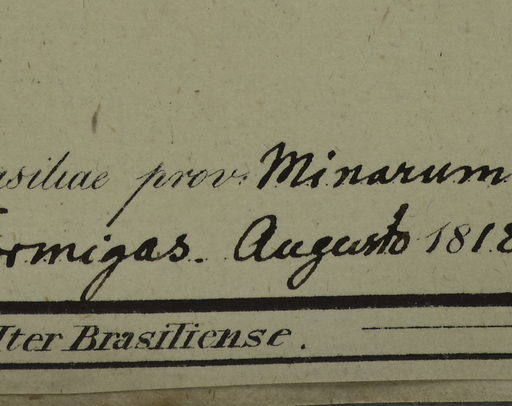 asiliae prov. Minarum
ormigas. Augusto 1818
Iter Brasiliense.